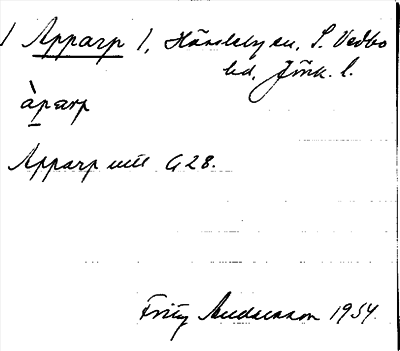 / Apparp 1, Hässleby sn, S. Vedbo
hd, Jönk. l.
àparp
Apparp utt G 28.
Fritz Andersson 1954.